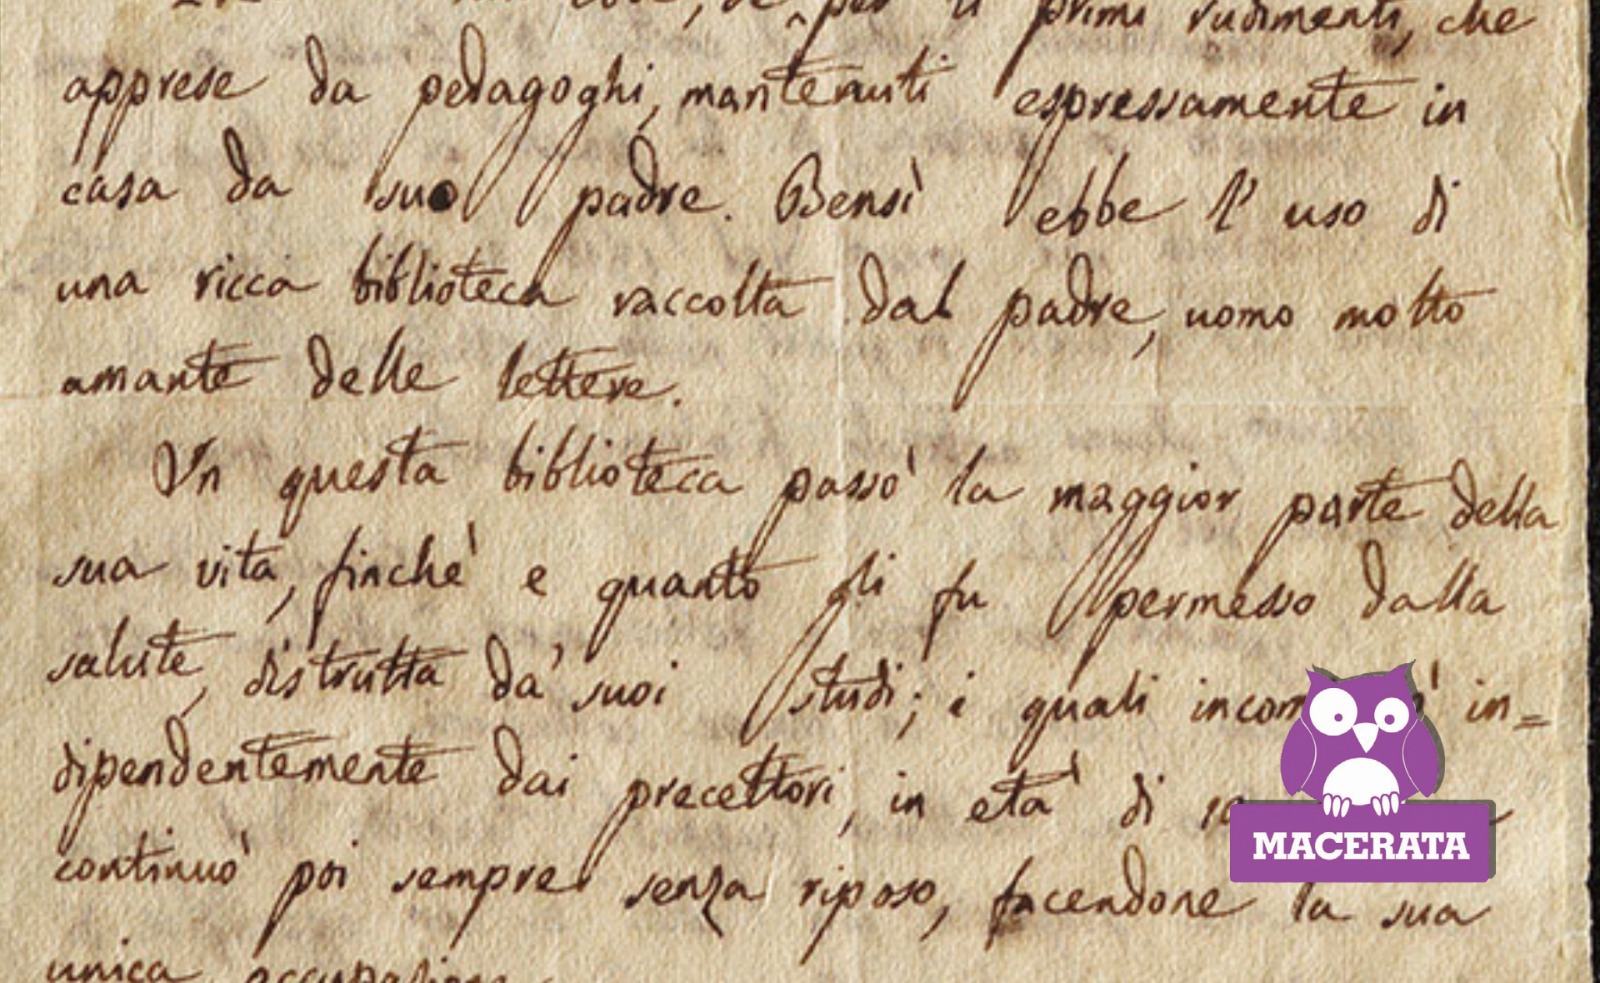 per li primi rudimenti, che
apprese da pedagoghi, mantenuti espressamente in
casa da suo padre. Bensì ebbe l'uso di
una ricca biblioteca raccolta dal padre, uomo molto
amante delle lettere.
In questa biblioteca passò la maggior parte della
sua vita, finchè e quanto gli fu permesso dalla
salute, distrutta da' suoi studi; i quali in=
dipendentemente dai precettori, in età di
continuò poi sempre senza riposo, facendone la sua
unica occupazione
MACERATA